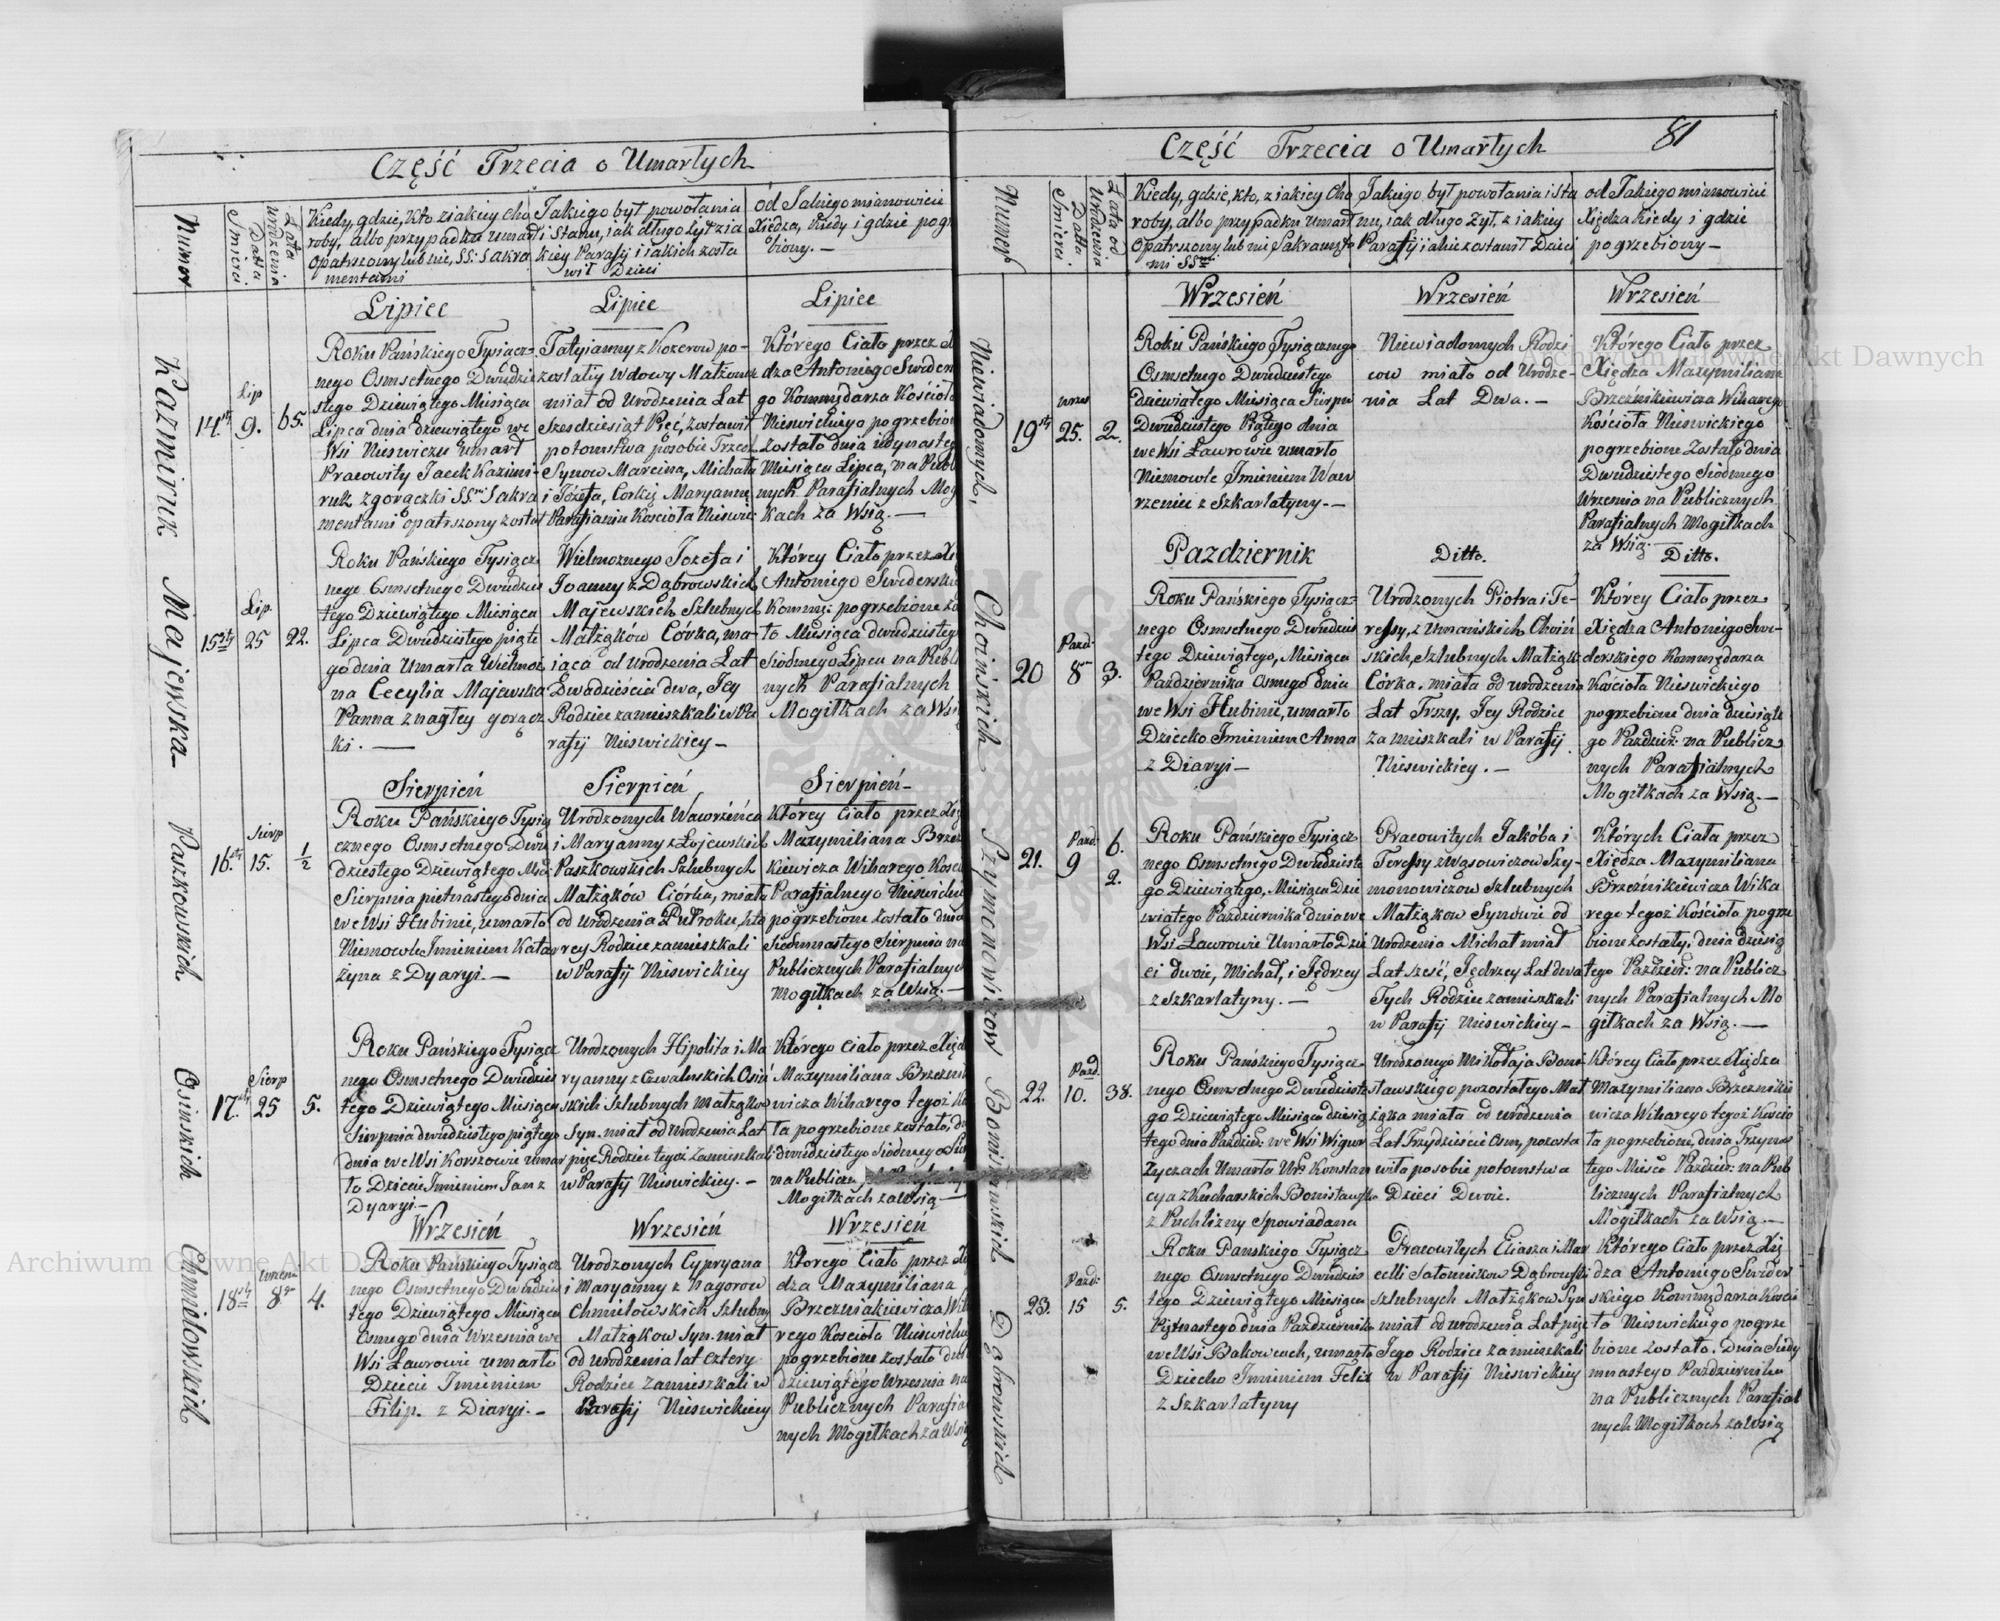 Część Trzecia o Umarłych
Numer
Datta Smierci
Lata urodzenia
Kiedy, gdzie, kto z iakiey cho
roby, albo przypadku umarł
opatrzony lub nie, SS: Sakra
mentami
Jakiego był powołania
i Stanu, iak długo żył z ia
kiey Parafij i iakich zosta
wił Dzieci
od Jakiego mianowicie
Xiędza, Kiedy i gdzie pogr
biony. —
Kazmiruk
14.
Lip
9.
65.
Lipiec
Roku Pańskiego Tysiącz-
nego Osmsetnego Dwudzie
stego Dziewiątego Miesiąca
Lipca dnia dziewiątego we
Wsi Nieswiczu umarł
Pracowity Jacek Kazimi-
ruk z gorączki SS. Sakra
mentami opatrzony został
Lipiec
Tatyianny z Kozerow po-
zostałey Wdowy Małżonek
miał od Urodzenia Lat
Szesdziesiąt Pięć, zostawił
potomstwa po sobie Trzech
Synow Marcina, Michała
i Józefa, Corkę Maryannę
Parafianin Kościoła Nieswic
Lipiec
Którego Ciało przez X
dza Antoniego Swiders
go Kommędarza Kościoł
Nieswickiego pogrzebion
zostało dnia iedynastego
Miesiąca Lipca, na Publ
nych Parafialnych Mog
kach za Wsią. —
Majewska
15
Lip.
25
22.
Roku Pańskiego Tysiącz
nego Osmsetnego Dwudzies
tego Dziewiątego Miesiąca
Lipca Dwudziestego piąte
go dnia Umarła Wielmoż
na Cecylia Majewska
Panna z nagłey gorącz
ki. —
Wielmożnego Jozefa i
Joanny z Dąbrowskich
Majewskich Szlubnych
Małżąków Córka, ma-
iąca od urodzenia Lat
Dwadzieścia dwa, Jey
Rodzice zamieszkali w Pa
rafij Nieswickiey —
Którey Ciało przez Xię
Antoniego Swiderski
Kommę: pogrzebione zo
to Miesiąca dwudziesteg
Siódmego Lipca na Publ
nych Parafialnych
Mogiłkach za Wsi
Paszkowskich
16.
Sierp
15.
1/2
Sierpień
Roku Pańskiego Tysią
cznego Osmsetnego Dwu
dziestego Dziewiątego Msca
Sierpnia pietnastego dnia
we Wsi Hubinie, umarło
Niemowle Imieniem Katar
żyna z Dyaryi. —
Sierpień
Urodzonych Wawrzeńca
i Maryanny z Łojewskich
Paszkowskich Szlubnych
Małżąków Córka, miała
od urodzenia Puł roku, któ
rey Rodzice zamieszkali
w Parafij Nieswickiey
Sierpień —
Którey Ciało przez Xię
Maxymiliana Brzez
kiewicza Wikarego Kości
Parafialnego Nieswicki
pogrzebione zostało dnia
Siedmnastego Sierpnia na
Publicznych Parafialnych
Mogiłkach za Wsią. —
Osinskich
17.
Sierp
25
5.
Roku Pańskiego Tysiącz
nego Osmsetnego Dwudzies
tego Dziewiątego Miesiąca
Sierpnia dwudziestego piątego
dnia we Wsi Korszowie umar
ło Dziecie Imieniem Jan z
Dyaryi —
Urodzonych Hipolita i Ma
ryanny z Czwalinskich Osiń
skich Szlubnych Małżąkow
Syn. miał od Urodzenia Lat
pięć Rodzice tegoż zamieszkali
w Parafij Nieswickiey. —
Którego ciało przez Xięd
Maxymiliana Brzezni
wicza Wikarego tegoż Ko
ła pogrzebione zostało, dn
dwudziestego Siódmego Sier
na Publiczn
Mogiłkach za Wsią —
Chmielowskich
18
Wrzesn
8
4.
Wrzesień
Roku Pańskiego Tysiącz
nego Osmsetnego Dwudzies
tego Dziewiątego Miesiąca
Osmego dnia Wrzesnia we
Wsi Ławrowie umarło
Dziecie Imieniem
Filip. z Diaryi. —
Wrzesień
Urodzonych Cypryana
i Maryanny z Nagorow
Chmielowskich Szlubny
Małżąkow Syn. miał
od urodzenia lat cztery
Rodzice zamieszkali w
Parafij Nieswickiey
Wrzesień
Ktorego Ciało przez Xię
dza Maxymiliana
Brzezniakiewicza Wik
rego Kościoła Nieswicki
pogrzebione zostało dnia
dziewiątego Wrzesnia na
Publicznych Parafia
nych Mogiłkach za Wsią
Część Trzecia o Umarłych
81
Numer
Datta Smierci.
Lata od Urodzenia
Kiedy, gdzie, kto, z iakiey Cho
roby, albo przypadku umarł
Opatrzony lub nie, Sakramęta
mi SS
Jakiego był powołania i Sta
nu, iak długo Żył, z iakiey
Parafij i iakie zostawił Dzieci
od Jakiego mianowicie
Xiędza Kiedy i gdzie
pogrzebiony —
Niewiadomych,
19
wrzes
25.
2.
Wrzesień
Roku Pańskiego Tysiącznego
Osmsetnego Dwudziestego
dziewiątego Miesiąca Sierpn
Dwudziestego Piątego dnia
we Wsi Ławrowie umarło
Niemowle Imieniem Waw
rzeniec z Szkarlatyny. —
Wrzesień
Niewiadomych Rodzi
cow miało od Urodze-
nia Lat Dwa. —
Wrzesień
Którego Ciało przez
Xiędza Maxymiliana
Brzeźnikiewicza Wikarego
Kościoła Nieswickiego
pogrzebione Zostało dnia
Dwudziestego Siódmego
Wrzesnia na Publicznych
Parafialnych Mogiłkach
za Wsią. —
Choinskich
20
Pazd:
8
3.
Pazdziernik
Roku Pańskiego Tysiącz-
nego Osmsetnego Dwudzies
tego Dziewiątego, Miesiąca
Pazdziernika Osmego dnia
we Wsi Hubinie, umarło
Dziecko Imieniem Anna
z Diaryi —
Ditto.
Urodzonych Piotra i Te-
ressy, z Umańskich Choiń
skich, Szlubnych Małżąk
Córka. miała od urodzenia
Lat Trzy, Jey Rodzice
zamieszkali w Parafij
Nieswickiey. —
Ditto.
Którey Ciało przez
Xiędza Antoniego Swi-
derskiego Kommędarza
Kościoła Nieswickiego
pogrzebione dnia dziesiąte
go Pazdzier: na Publicz
nych Parafialnych
Mogiłkach za Wsią. —
Szymonowiczow
21.
Pazd:
9
6.
2.
Roku Pańskiego Tysiącz
nego Osmsetnego Dwudzieste
go Dziewiątego, Miesiąca Dzie
wiątego Pazdziernika dnia we
Wsi Ławrowie Umarło Dzie
ci dwoie, Michał, i Jędrzey
z Szkarlatyny. —
Pracowitych Jakóba i
Teressy z Wąsowiczow Szy-
monowiczow Szlubnych
Małżąkow Synowie od
Urodzenia Michał miał
Lat sześć, Jędrzey Lat dwa
Tych Rodzice zamieszkali
w Parafij Nieswickiey —
Których Ciała przez
Xiędza Maxymiliana
Brzeźnikiewicza Wika
rego tegoż Kościoła pogrze
bione zostały, dnia dziesią
tego Pazdzier: na Publicz
nych Parafialnych Mo
giłkach za Wsią. —
Bonisławskich
22.
Pazd.
10.
38.
Roku Pańskiego Tysiącz-
nego Osmsetnego Dwudzieste
go Dziewiątego Miesiąca dziesią
tego dnia Pazdzier: we Wsi Wigur
życzach Umarła Konstan
cya z Kucharskich Bonisławska
z Puchliny Spowiadana
Urodzonego Mikołaja Boni
sławskiego pozostałego Mał
żąka miała od urodzenia
Lat Trzydzieście Osm, pozosta
wiła po sobie potomstwa
Dzieci Dwoie.
Którey Ciało przez Xiędza
Maxymiliana Brzeznikie
wicza Wikarego tegoż Koscio
ła pogrzebione, dnia Trzynas
tego Miesca Pazdzier: na Pub
licznych Parafialnych
Mogiłkach za Wsią —
Dąbrowskich
23.
Pazd:
15
5.
Roku Panskiego Tysiącz
nego Osmsetnego Dwudzies
tego Dziewiątego Miesiąca
Piętnastego dnia Pazdziernika
we Wsi Bakowcach, umarło
Dziecko Imieniem Felix
z Szkarlatyny
Pracowitych Eliasza i Mar
celli Sałomiakow Dąbrowski
szlubnych Małżąkow Syn
miał od urodzenia Lat pięć
Jego Rodzice zamieszkali
w Parafij Nieswickiey
Którego Ciało przez Xię
dza Antoniego Swider
skiego Kommędarza Koscio
ła Nieswickiego pogrze
bione zostało. Dnia Siedy
mnastego Pazdziernika
na Publicznych Parafial
nych Mogiłkach za Wsią
Archiwum Główne Akt Dawnych
Archiwum Główne Akt Dawnych